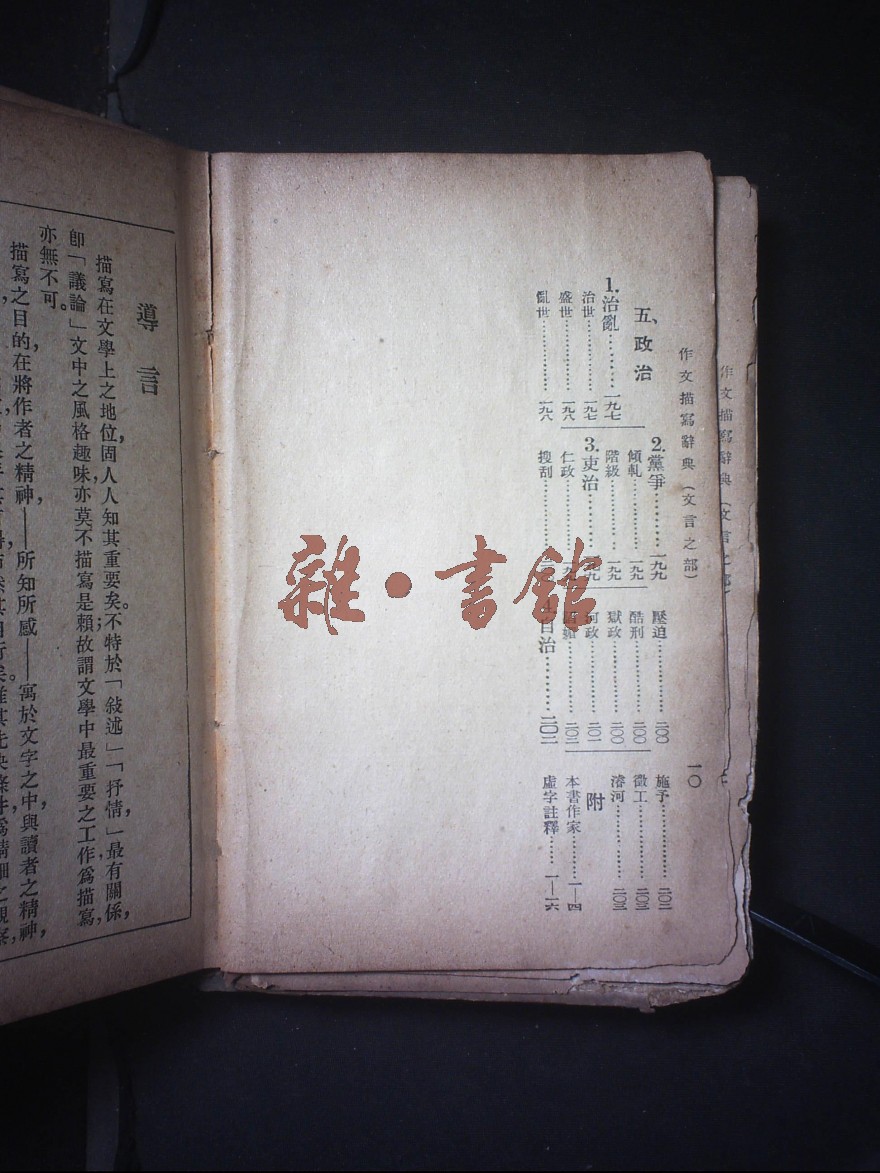 作文描寫辭典（文言之部）
作文描寫辭典（文言之部）
一〇
五、政治
1.治亂………一九七
治世…………一九七
盛世…………一九八
亂世…………一九八
2.黨爭………一九九
傾軋…………一九九
階級…………一九九
3.吏治………一九九
仁政…………一九九
搜刮…………
壓迫…………二〇〇
酷刑…………二〇〇
獄政…………二〇〇
河政…………二〇一
…………二〇二
自治………二〇二
施予…………二〇二
徵工…………二〇三
濬河…………二〇三
附
本書作家………一—四
虛字註釋………一—一六
雜·書館
導言
描寫在文學上之地位，固人人知其重要矣。不特於「敍述」「抒情」，最有關係，
即「議論」文中之風格趣味，亦莫不描寫是賴；故謂文學中最重要之工作爲描寫，
亦無不可。
描寫之目的，在將作者之精神——所知所感——寓於文字之中，與讀者之精神，